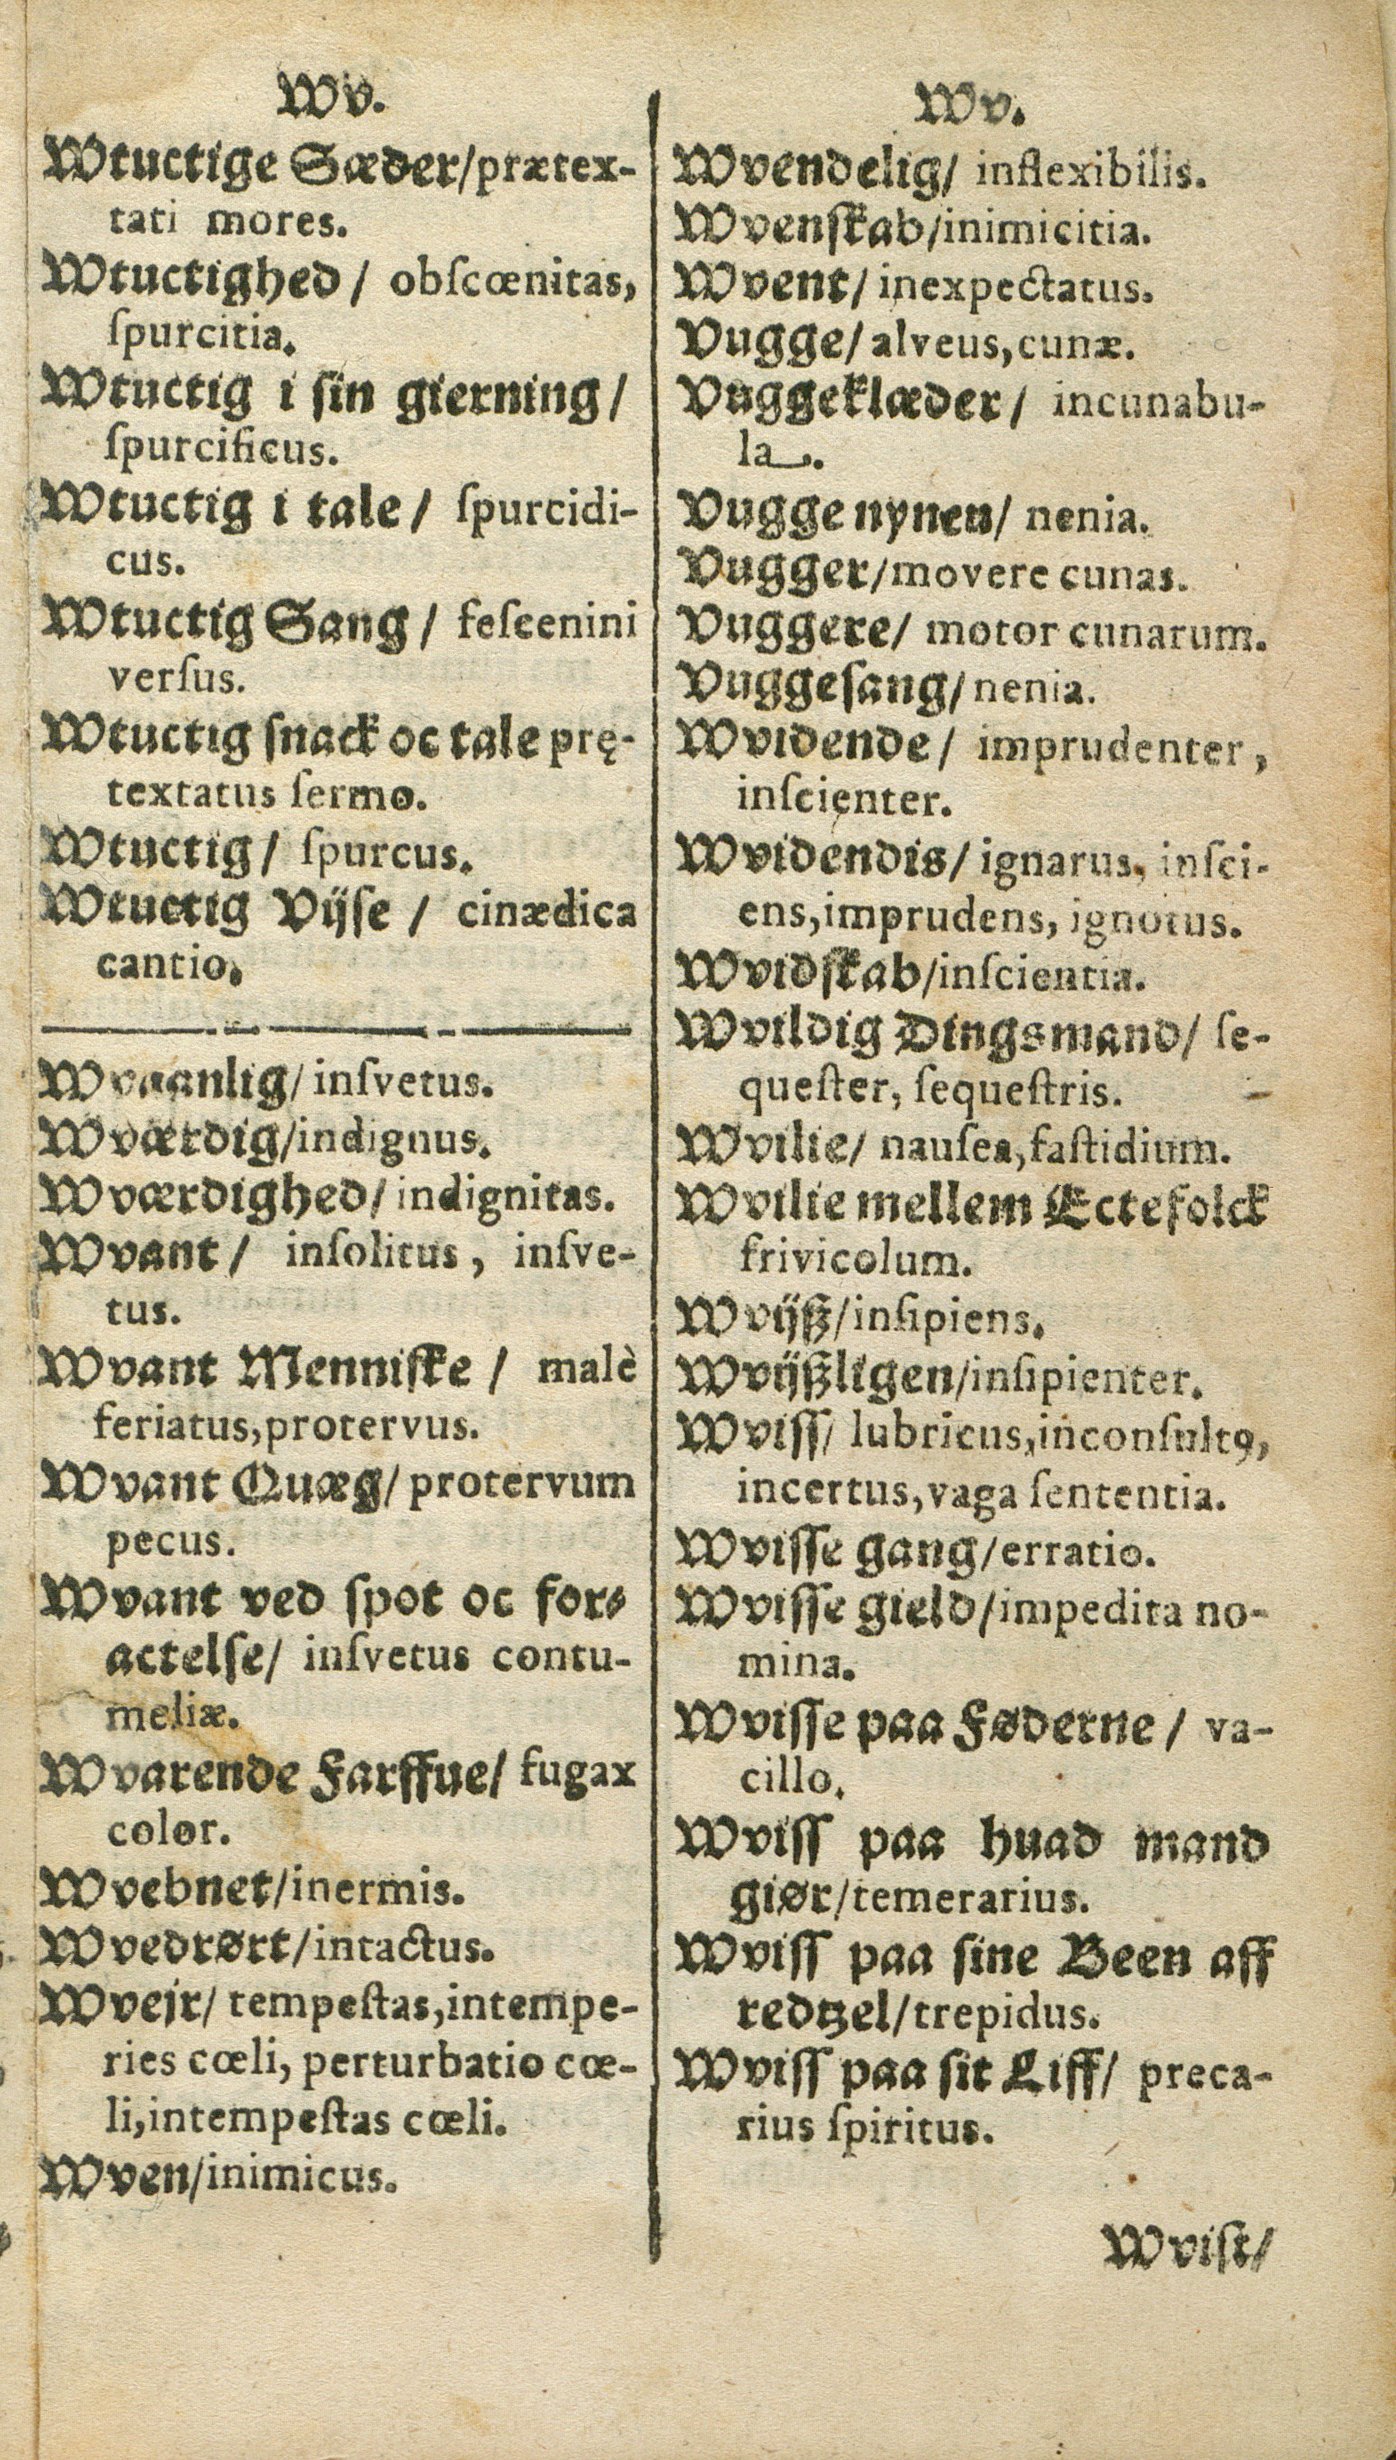 Wv.
Wtuctige Sæder/prætex-
tati mores.
Wtuctighed / obſcœnitas,
ſpurcitia.
Wtuctig i ſin gierning /
ſpurcificus.
Wtuctig i tale / ſpurcidi-
cus.
Wtuctig Sang / feſcenini
verſus.
Wtuctig ſnack oc tale prę-
textatus ſermo.
Wtuctig / ſpurcus.
Wtuctig Vijſe / cinædica
cantio.
Wvaanlig/ inſvetus.
Wværdig/indignus.
Wværdighed/ indignitas.
Wvant / inſolitus, inſve-
tus.
Wvant Menniſke / malè
feriatus,protervus.
Wvant Quæg/ protervum
pecus.
Wvant ved ſpot oc for-
actelſe/ inſvetus contu-
meliæ.
Wvarende Farffue/ fugax
color.
Wvebnet/inermis.
Wvedrørt/intactus.
Wveir/ tempeſtas,intempe-
ries cœli, perturbatio cœ-
li,intempeſtas cœli.
Wven/inimicus.
Wv.
Wvendelig/ inflexibilis.
Wvenſkab/inimicitia.
Wvent/ inexpectatus.
Vugge/ alveus,cunæ.
Vuggeklæder/ incunabu-
la.
Vugge nynen/ nenia.
Vugger/movere cunas.
Vuggere/ motor cunarum.
Vuggeſang/ nenia.
Wvidende/ imprudenter,
inſcienter.
Wvidendis/ ignarus, inſci-
ens,imprudens, ignotus.
Wvidſkab/inſcientia.
Wvildig Dingsmand/ ſe-
queſter, ſequeſtris.
Wvilie/ nauſea,faſtidium.
Wvilie mellem Ectefolck
frivicolum.
Wvijß/inſipiens.
Wvijßligen/inſipienter.
Wviſſ/ lubricus,inconſultꝰ,
incertus,vaga ſententia.
Wviſſe gang/erratio.
Wviſſe gield/impedita no-
mina.
Wviſſe paa Føderne / va-
cillo.
Wviſſ paa huad mand
giør/temerarius.
Wviſſ paa ſine Been aff
redtzel/trepidus.
Wviſſ paa ſit Liff/ preca-
rius ſpiritus.
Wviſt/